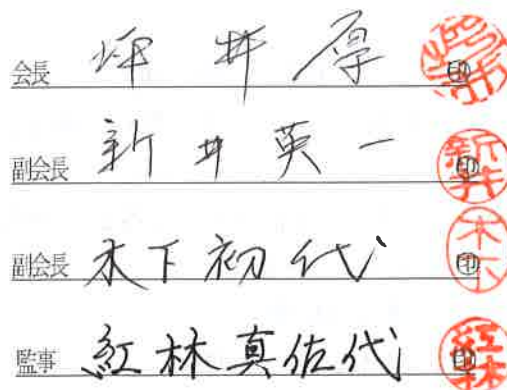 会長 坪井厚 印
副会長 新井英一 印 新井
副会長 木下初代 印 木下
監事 紅林真佐代 印 紅林